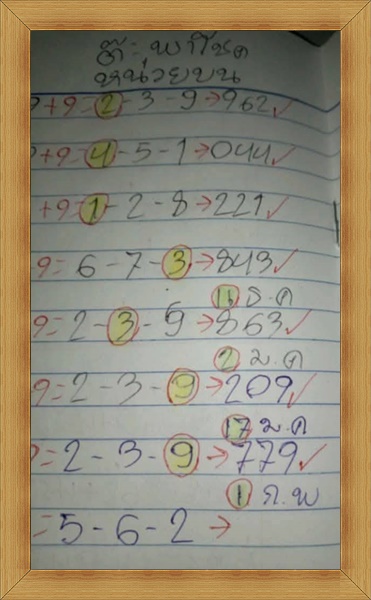 หน่วยบน
+9=2-3-9→962✓
+9=4-5-1→044✓
+9=1-2-8→221✓
9=6-7-3→843✓
16 ธ.ค
9=2-3-9→863✓
2 ม.ค
9=2-3-9→209✓
17 ม.ค
=2-3-9→779✓
1 ก.พ
=5-6-2→